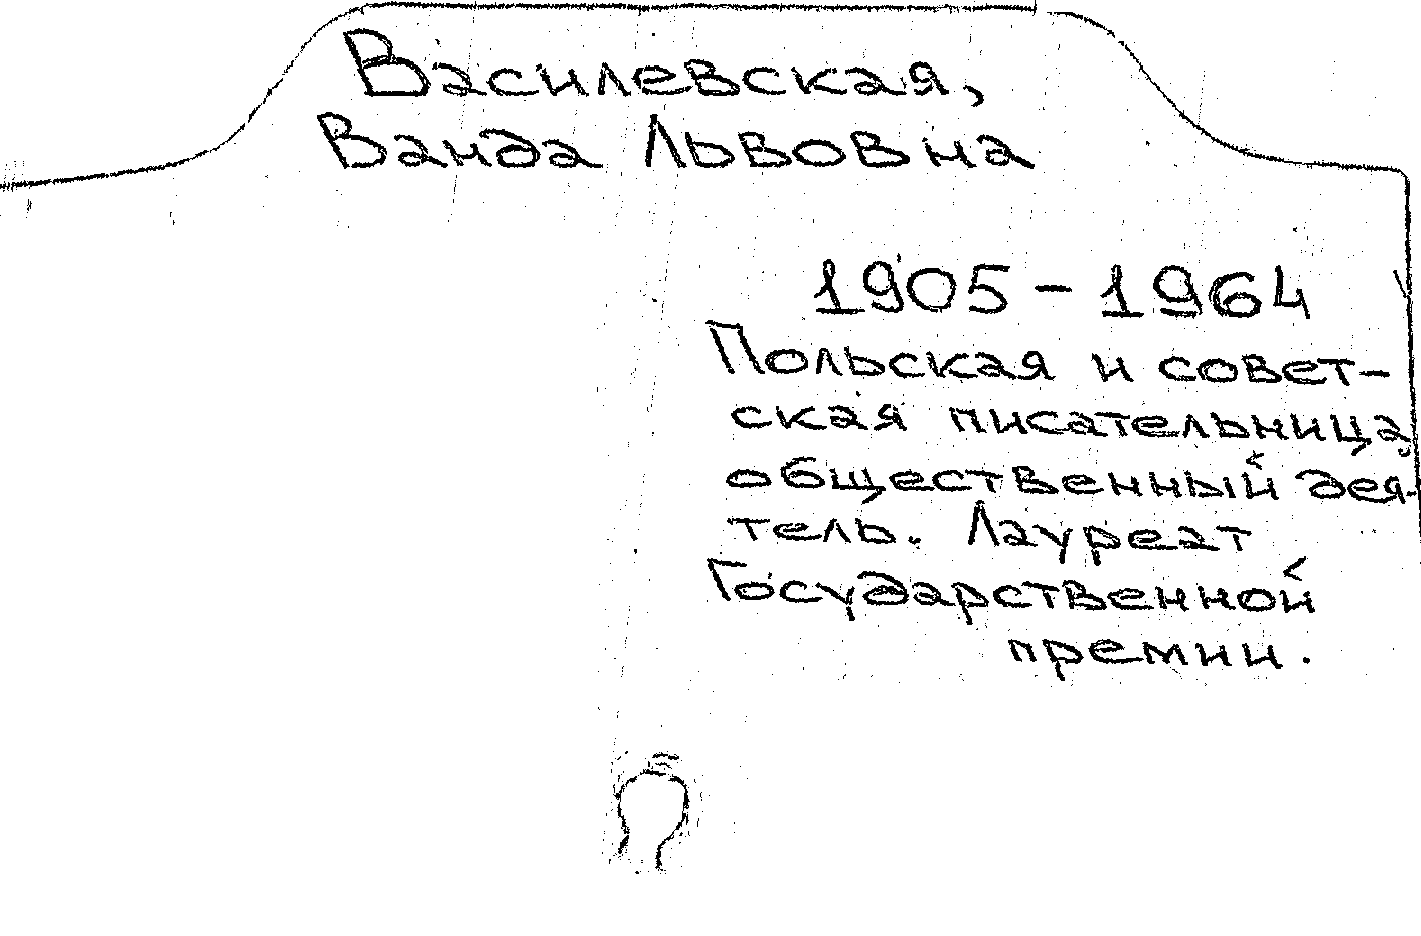 Василевская,
Ванда Львовна
1905-1964
Польская и совет-
ская писательница,
общественный дея-
тель. Лауреат
Государственной
премии.